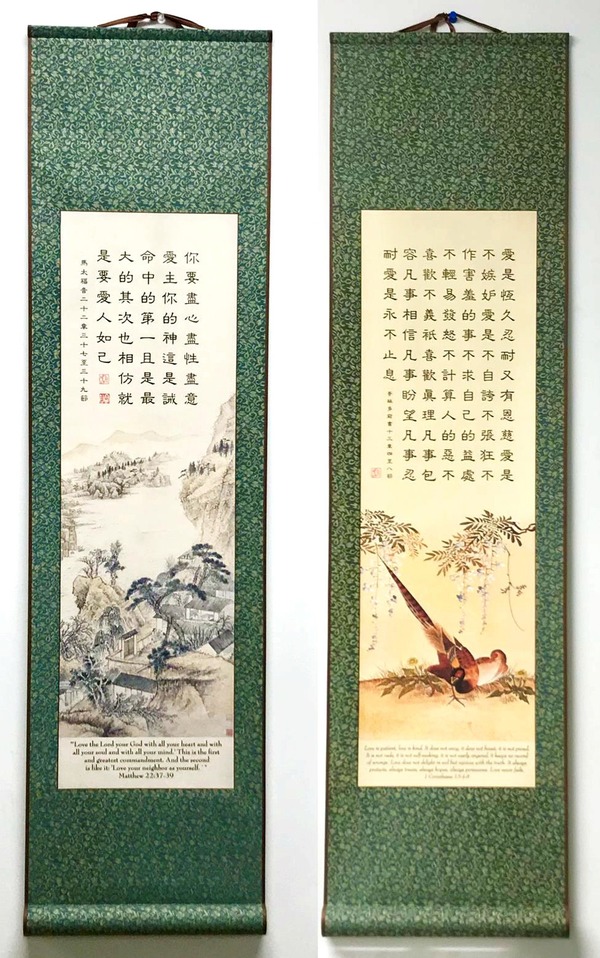 你要盡心盡性盡意
愛主你的神這是誡
命中的第一且是最
大的其次也相仿就
是要愛人如己
馬太福音二十二章三十七至三十九節
"'Love the Lord your God with all your heart and with
all your soul and with all your mind.' This is the first
and greatest commandment. And the second
is like it: 'Love your neighbor as yourself.'"
Matthew 22:37-39
愛是恆久忍耐又有恩慈愛是
不嫉妒愛是不自誇不張狂不
作害羞的事不求自己的益處
不輕易發怒不計算人的惡不
喜歡不義祇喜歡真理凡事包
容凡事相信凡事盼望凡事忍
耐愛是永不止息
哥林多前書十三章四至八節
Love is patient, love is kind. It does not envy, it does not boast, it is not proud.
It is not rude, it is not self-seeking, it is not easily angered, it keeps no record
of wrongs. Love does not delight in evil but rejoices with the truth. It always
protects, always trusts, always hopes, always perseveres. Love never fails.
1 Corinthians 13:4-8